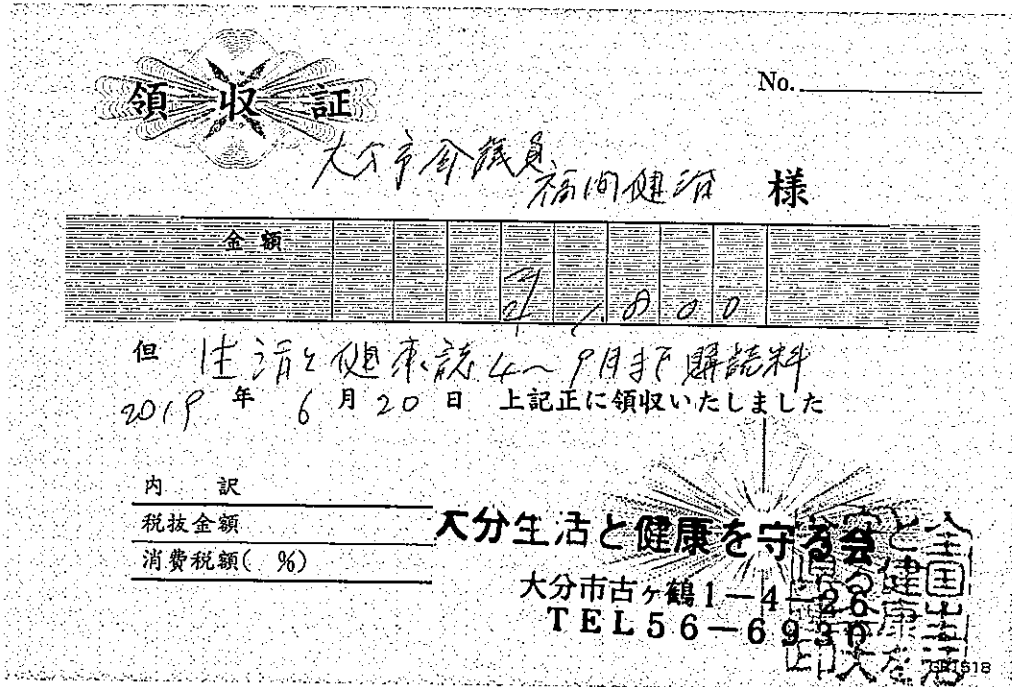 領収証
No.
大分市会議員
福間健治 様
金額
1800
但 生活と健康誌4～9月まで購読料
2019年 6月20日 上記正に領収いたしました
内 訳
税抜金額
消費税額( %)
大分生活と健康を守る会
大分市古ヶ鶴1－4－26
TEL56－6930